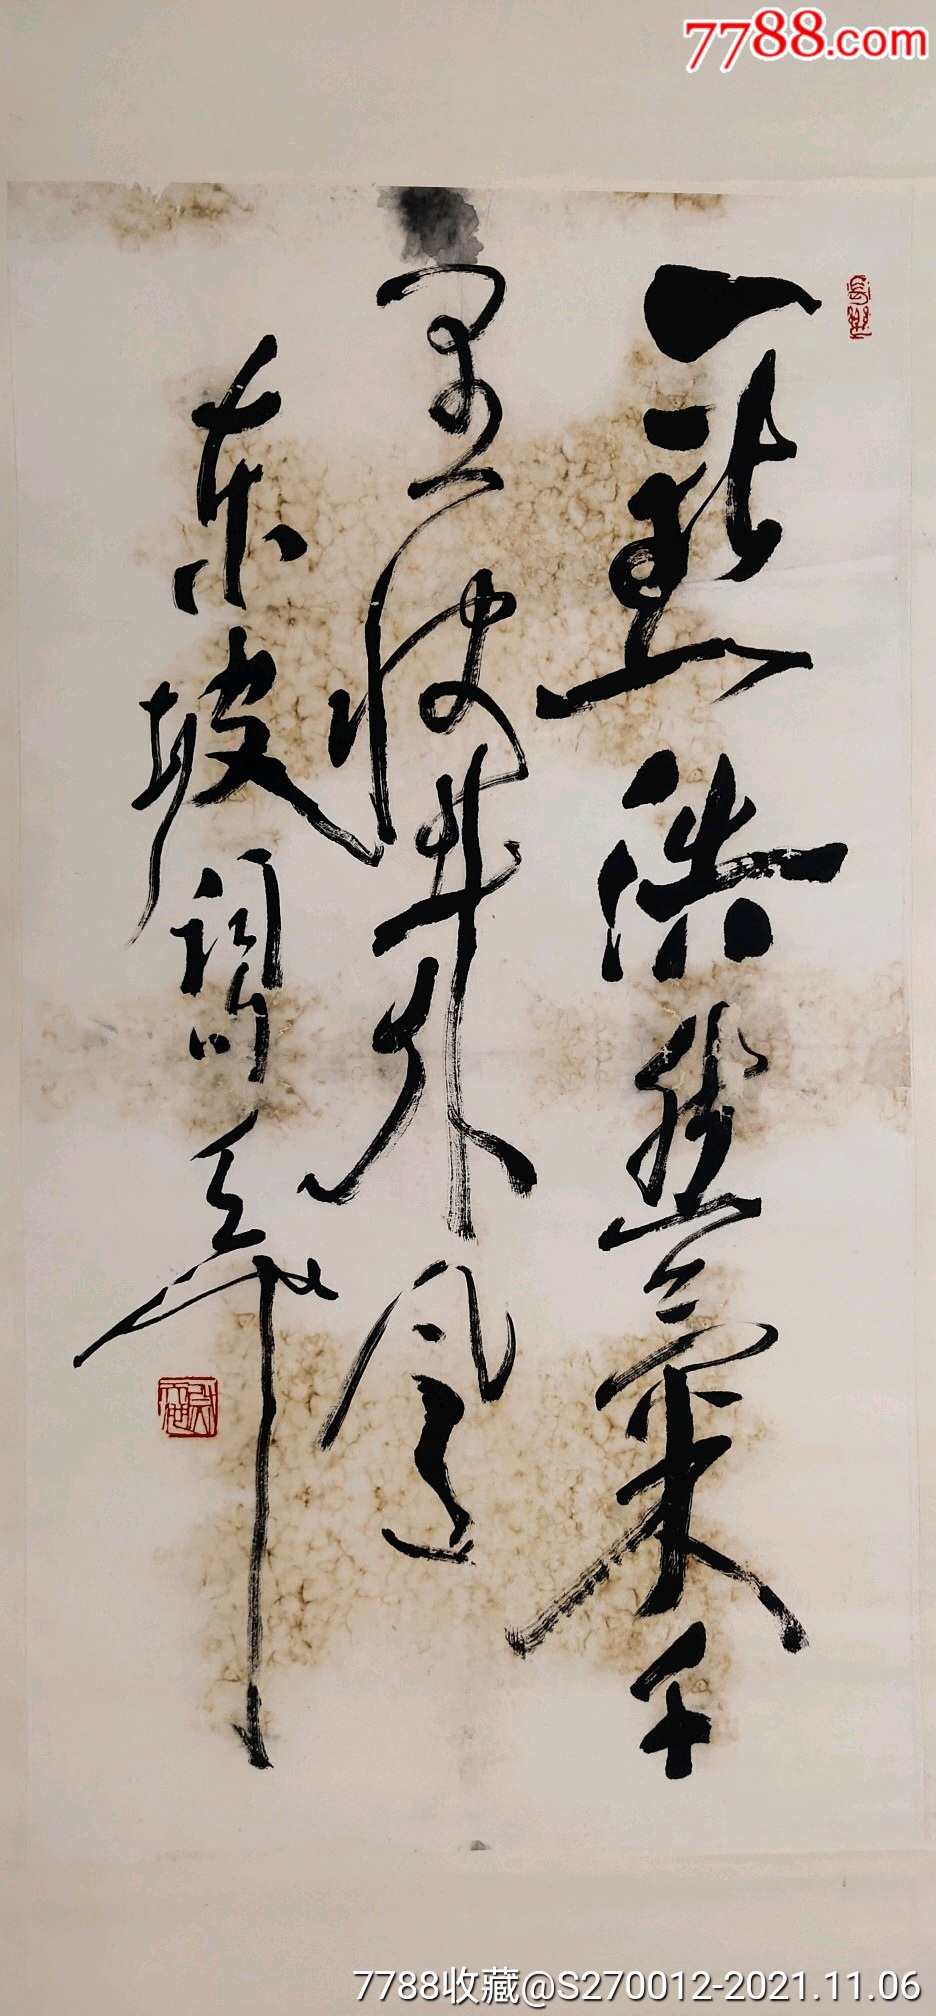 7788.com
一點浩然氣千
里快哉風
東坡詞句
7788收藏@S270012-2021.11.06